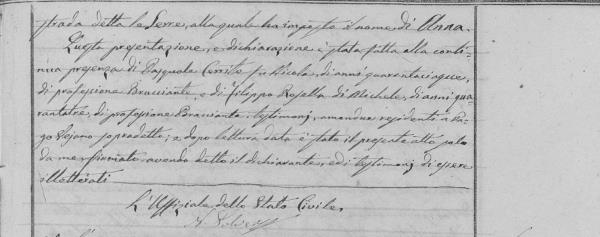 strada detta le Serre, alla quale ha imposto i nome di Anna.
Questa presentazione, e dichiarazione è stata fatta alla conti-
nua presenza di Pasquale fu Nicola, di anni quarantacinque,
di professione Bracciante, e di Filippo Rosella di Michele, di anni qua
rantatre, di professione Bracciante, testimonj, amendue residenti in
sopradetto; e dopo lettura data è stato il presente atto solo
da me firmato avendo detto il dichiarante, ed i testimonj di essere
illetterati
L'Uffiziale dello Stato Civile,